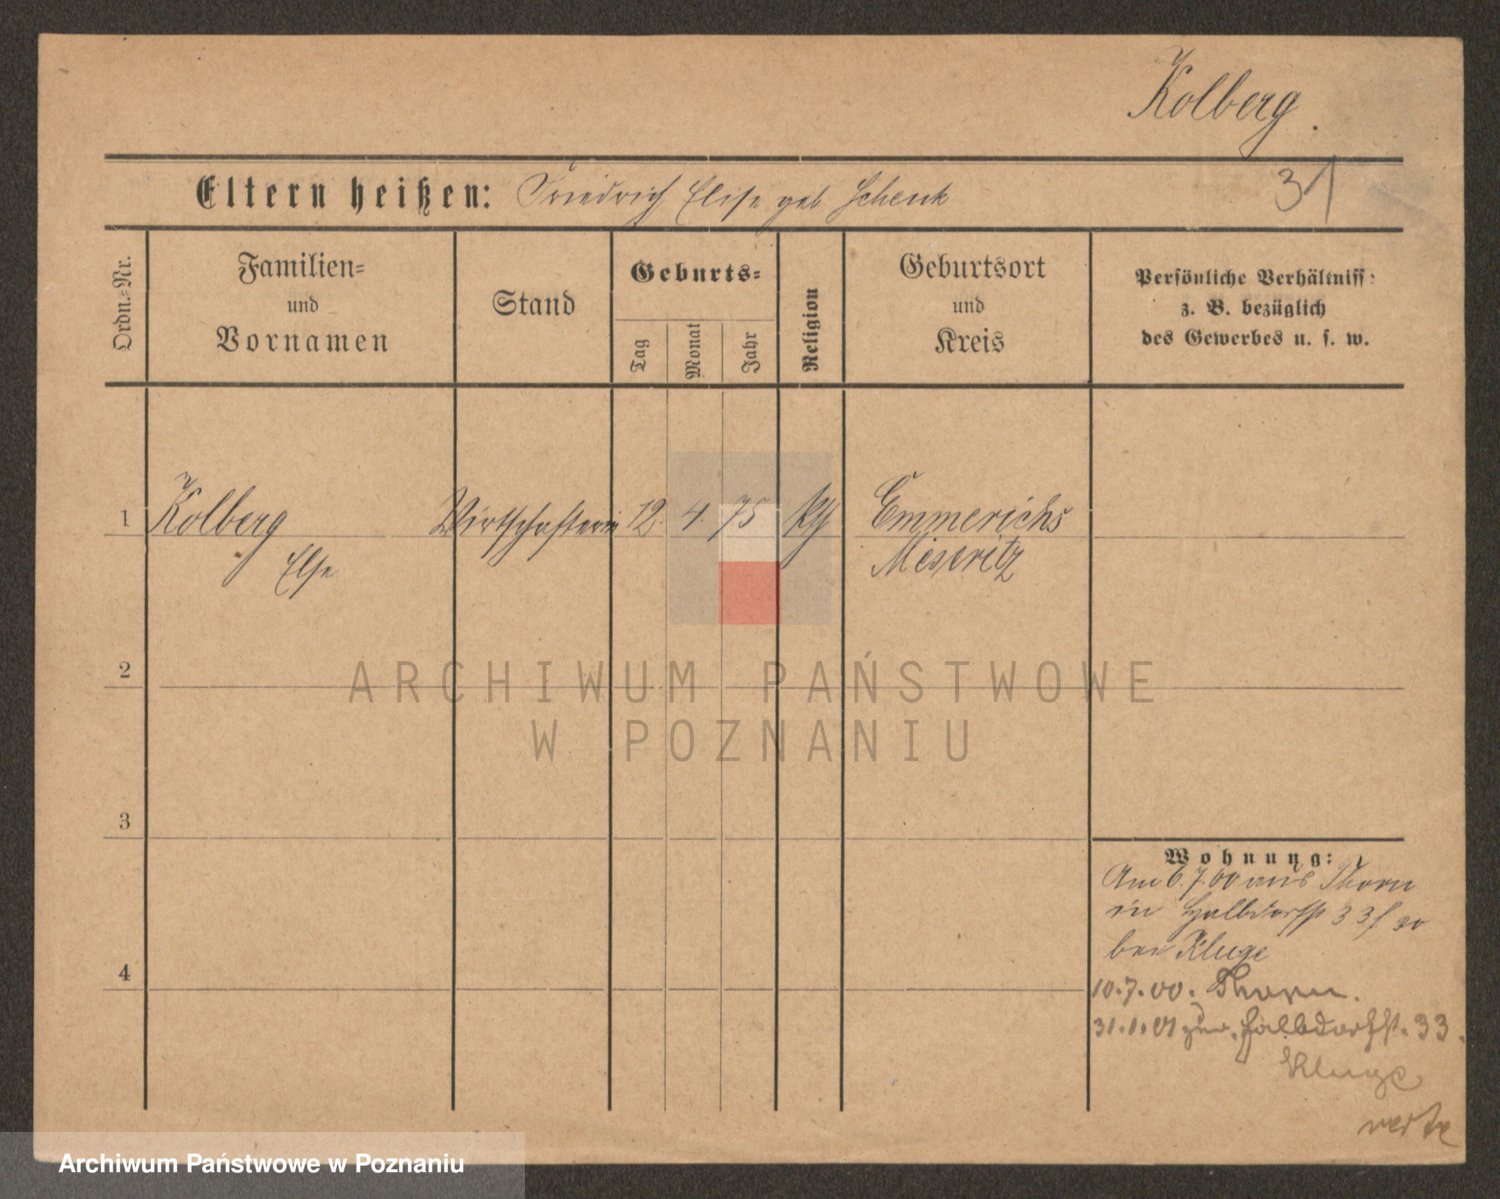 Kolberg.
Eltern heißen: Friedrich Elise geb Schenk
31
Ordn.-Nr.
Familien-
und
Vornamen
Stand
Geburts-
Tag
Monat
Jahr
Religion
Geburtsort
und
Kreis
Persönliche Verhältniss:
z. B. bezüglich
des Gewerbes u. s. w.
1 Kolberg Wirtschafterin 12. 4. 75 Emmerichs
Else Meseritz
2
ARCHIWUM PAŃSTWOWE
W POZNANIU
3
Wohnung:
Am 6.7.00 aus Thorn
in Halbdorfstr 33
bei Kluge
4
10.7.00. Thorn.
31.1.01 zur. Halbdorfst. 33.
Kluge
verte
Archiwum Państwowe w Poznaniu